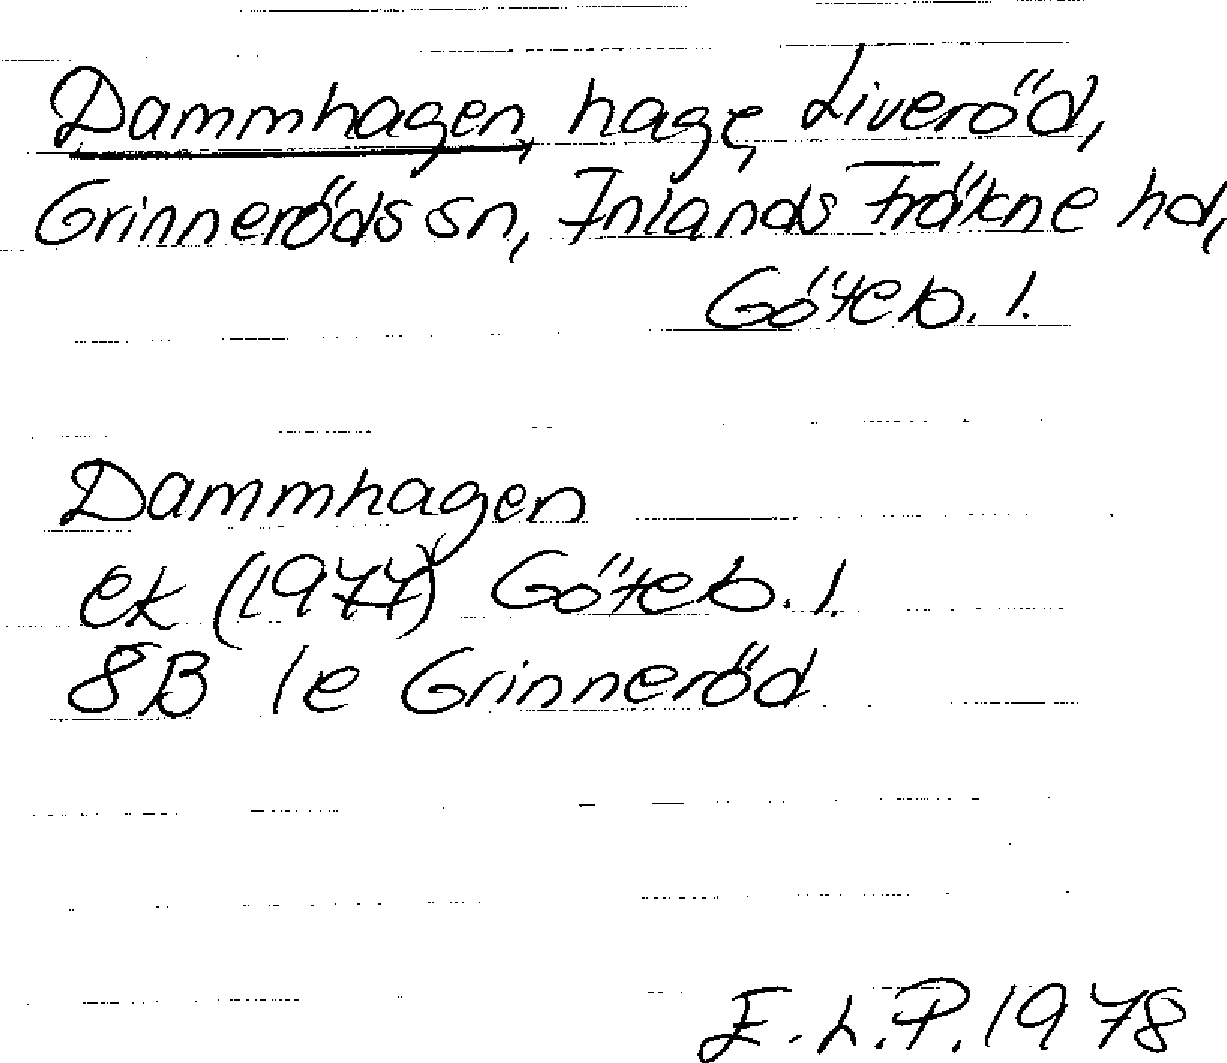 Dammhagen, hage, Liveröd,
Grinneröds sn, Inlands Fräkne hd,
Göteb. l.
Dammhagen
ek (1977) Göteb. l.
8B 1e Grinneröd
E. L. P. 1978